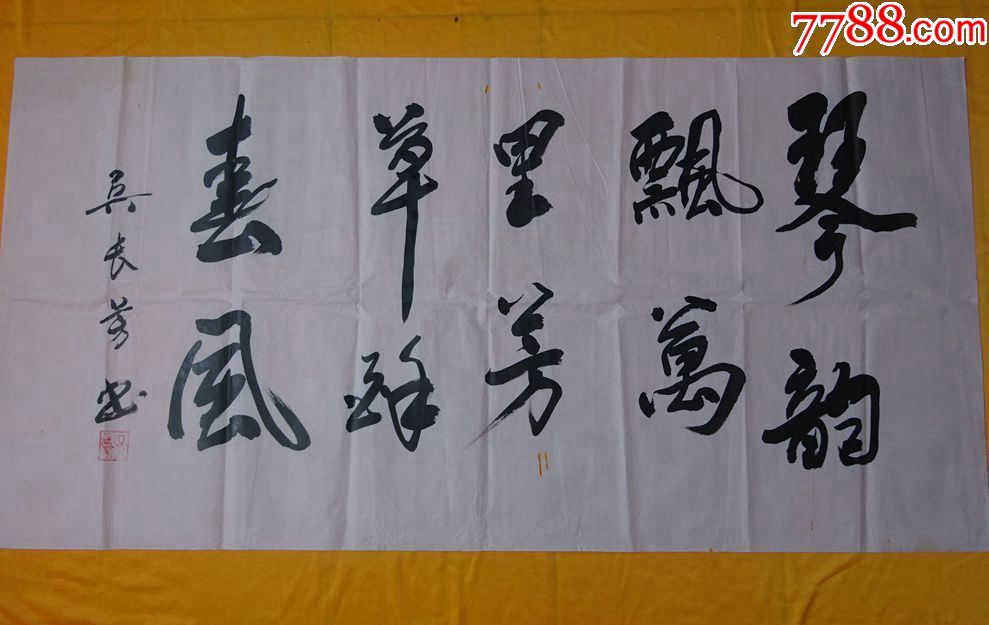 7788.com
琴韵
飘萬
里芳
草醉
春風
吴长芳书